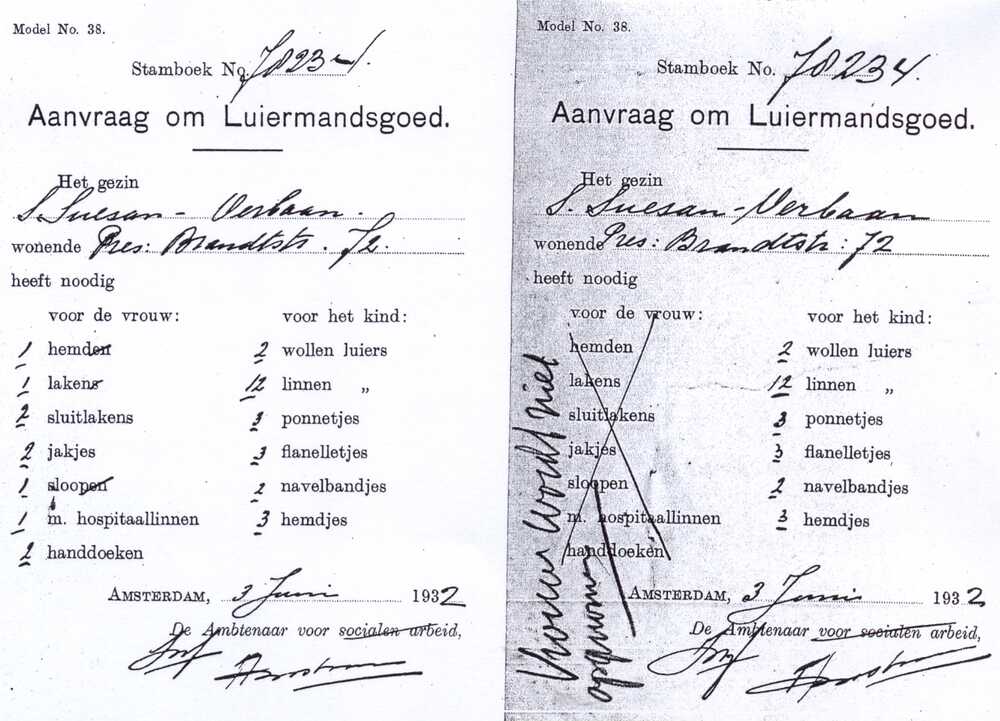 Model No. 38.
Stamboek No. 70234.
Aanvraag om Luiermandsgoed.
Het gezin
S. Suesan - Verbaan.
wonende Pres: Brandtstr. 72.
heeft noodig
voor de vrouw: voor het kind:
1 hemden 2 wollen luiers
1 lakens 12 linnen „
2 sluitlakens 3 ponnetjes
2 jakjes 3 flanelletjes
1 sloopen 2 navelbandjes
1 m. hospitaallinnen 3 hemdjes
2 handdoeken
Amsterdam, 3 Juni 1932
De Ambtenaar voor socialen arbeid,
Model No. 38.
Stamboek No. 70234
Aanvraag om Luiermandsgoed.
Het gezin
S. Suesan-Verbaan
wonende Pres: Brandtstr: 72
heeft noodig
voor de vrouw: voor het kind:
hemden 2 wollen luiers
lakens 12 linnen „
sluitlakens 3 ponnetjes
jakjes 3 flanelletjes
sloopen 2 navelbandjes
m. hospitaallinnen 3 hemdjes
handdoeken
Vrouw wordt niet
opgenomen
Amsterdam, 3 Juni 1932
De Ambtenaar voor socialen arbeid,